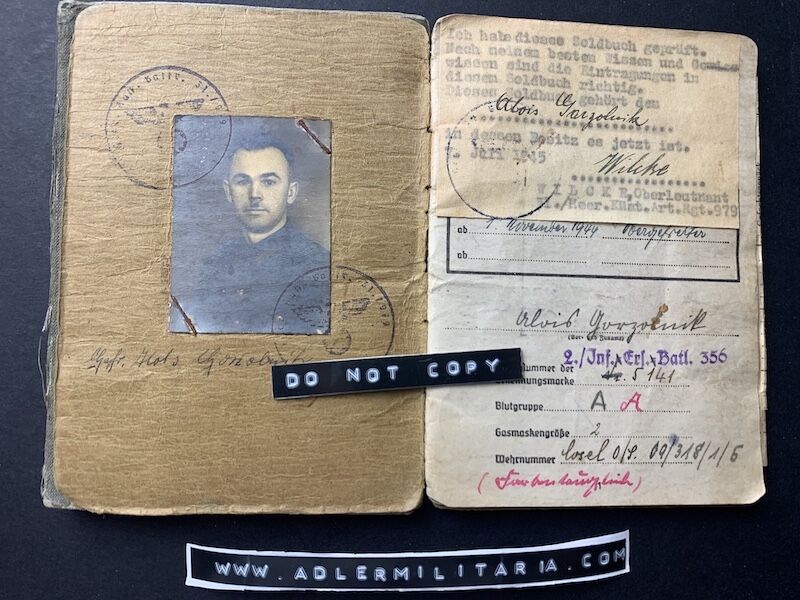 Alois Gorzolnik
DO NOT COPY
Ich habe dieses Soldbuch geprüft.
Nach meinem besten Wissen und Gewissen
wissen sind die Eintragungen in
diesem Soldbuch richtig.
Dieses Soldbuch gehört dem
Alois Gorzolnik
in dessen Besitz es jetzt ist.
Juli 1945
Wilcke
WILCKE, Oberleutnant
I./Heer.Küst.Art.Rgt.979
ab 1. November 1944 Obergefreiter
ab
Alois Gorzolnik
(Vor- und Zuname)
2./Inf.-Ers.-Batl. 356
Nummer der
Erkennungsmarke Nr. 5141
Blutgruppe A A
Gasmaskengröße 2
Wehrnummer Cosel O/S. 09/318/1/6
(Farbentauglich)
WWW.ADLERMILITARIA.COM